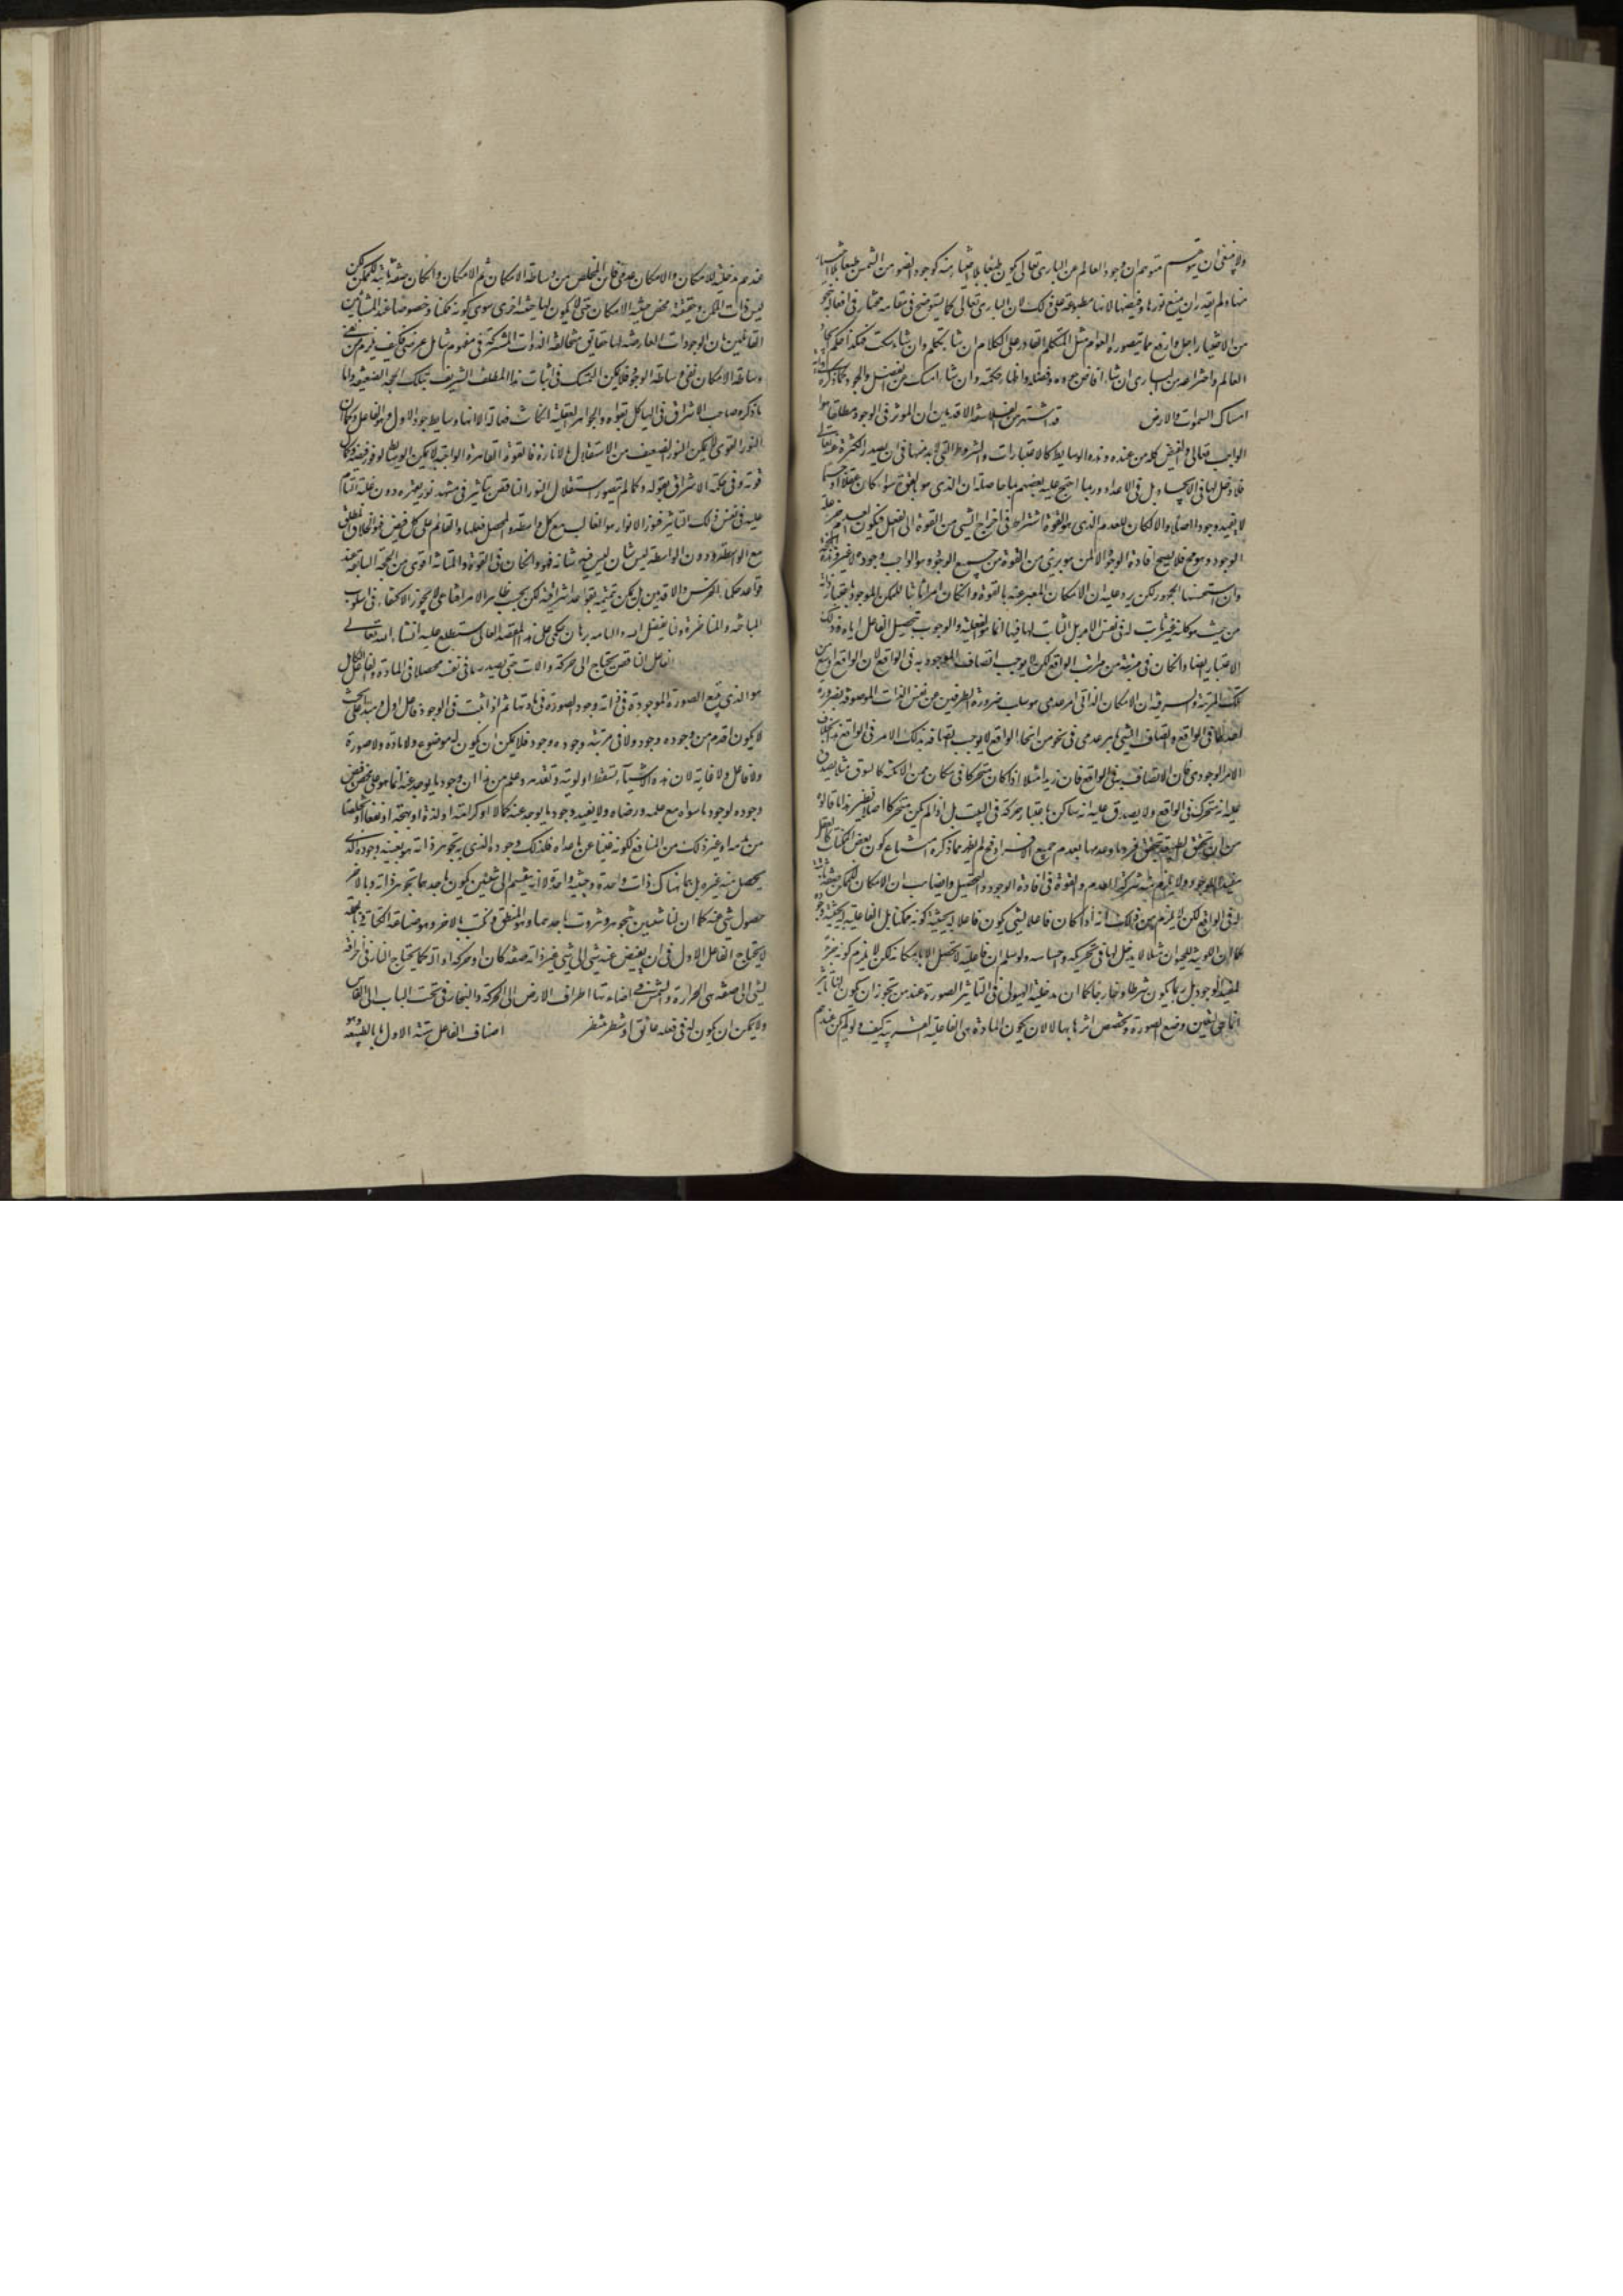 ولا ينبغى ان يتوهم متوهم ان وجود العالم من البارى تعالى يكون طبعا بلا اختيار منه كوجود الضوء من الشمس طبعا بلا اختيار
منها ولم يقدر ان يمنع نورها وفيضها لانها مطبوعة على ذلك لان البارى تعالى كما يستوضح فى مقامه مختار فى افعاله بنحو
من الاختيار اجل وارفع مما يتصوره العوام مثل المتكلم القادر على الكلام ان شاء تكلم وان شاء سكت فهكذا حكم ايجاد
العالم واختراعه من البارى ان شاء افاض جوده وفضله واظهار حكمته وان شاء امسك عن الفضل والجود كما ذكره
امساك السموات والارض قد اشتهر من الفلاسفة الاقدمين ان الموثر فى الوجود مطلقا هو
الواجب تعالى والفيض كله من عنده وهذه الوسايط كالاعتبارات والشروط التى لابد منها فى ان يصدر الكثرة عنه تعالى
فلا دخل لها فى الايجاد بل فى الاعداد وربما احتج عليه بعضهم بما حاصله ان الذى هو بالقوة سواء كان عقلا او جسما
لا يفيد وجودا اصلا والا لكان للعدم الذى هو القوة اشتراط فى اخراج الشى من القوة الى الفعل فيكون العدم جزء علة
الوجود وهو مح فلا يصح افادة الوجود الا لمن هو برئ من القوة من جميع الوجوه وهو الواجب وجوده لا غير وهذه الحجة
وان استحسنها الجمهور لكن يرد عليه ان الامكان المعبر عنه بالقوة وان كان امرا ثابتا للممكن الموجود باعتبار ذاته
من حيث هو لكنه غير ثابت له فى نفس الامر بل الثابت لها فيها انما هو الفعلية والوجوب بتحصيل الفاعل اياه وذلك
الاعتبار ايضا وان كان فى مرتبة من مراتب الواقع لكن لا يوجب اتصاف الموجود به فى الواقع لان الواقع اوسع من
تلك المرتبة والسر فيه ان الامكان الذاتى امر عدمى هو سلب ضرورة الطرفين عن نفس الذات الموصوفة بضرورة
احدهما فى الواقع واتصاف الشى بامر عدمى فى نحو من انحاء الواقع لا يوجب اتصافه بذلك الامر فى الواقع بخلاف
الامر الوجودى فان الاتصاف به فى الواقع فان زيدا مثلا اذا كان متحركا فى مكان من الامكنة كالسوق مثلا يصدق
عليه انه متحرك فى الواقع ولا يصدق عليه انه ساكن باعتبار حركة فى البيت بل اذا لم يكن متحركا اصلا نظير هذا ما قالوه
من ان تحقق الطبيعة بتحقق فرد ما وعدمها بعدم جميع الافراد فح لم يظهر مما ذكره امتناع كون بعض الممكنات كالعقل
مفيدا للوجود ولا يلزم منه شركة العدم والقوة فى افادة الوجود والتحصيل وايضا هب ان الامكان للممكن صفة ثابتة
له فى الواقع لكن لا يلزم من ذلك انه اذا كان فاعلا لشى يكون فاعلا له بحيثية كونه ممكنا بل الفاعلية له بحيثية وجوده
كما ان اللونية للحيوان مثلا لا يدخل لها فى تحريكه واحساسه ولو سلم ان فاعليته لا تحصل الا بامكانه لكن لا يلزم كونه جزء
للمفيد للوجود بل ربما يكون شرطا وخارجا كما ان مدخلية الهيولى فى التاثير الصورة عند من يجوز ان يكون لها تاثير
انما هى لتعين وضع الصورة وتخصص اثرها بها لا لان يكون المادة هى الفاعلية القريبة كيف ولو لم يكن عندهم
عندهم مدخلية للامكان والامكان عدمى فاين المخلص من وساطة الامكان ثم الامكان وان كان صفة ثابتة للممكن لكن
ليس ذات الممكن وحقيقته محض حيثية الامكان حتى لا يكون لها حيثية اخرى سوى كونه ممكنا وخصوصا عند المشائين
القائلين بان الوجودات العارضة لها حقايق متخالفة الذوات المشتركة فى مفهوم شامل عرضى فكيف يلزم من نفى
وساطة الامكان نفى وساطة الوجود فلا يمكن التمسك فى اثبات هذا المطلب الشريف بتلك الحجة الضعيفة واما
ما ذكره صاحب الاشراق فى الهياكل بقوله والجواهر العقلية وان كانت فعالة الا انها وسايط جود الاول وهو الفاعل وكما ان
النور القوى لا يمكن النور الضعيف من الاستقلال بالانارة فالقوة القاهرة الواجبية لا يمكن الوسايط لوفور فيضه وكمال
قوته وفى حكمة الاشراق بقوله وكما لم يتصور استقلال النور الناقص بتاثير فى مشهد نور يقهره دون غلبة التام
عليه فى نفس ذلك التاثير فنور الانوار هو الغالب مع كل واسطة والمحصل فعلها والقائم على كل فيض فهو الخلاق المطلق
مع الواسطة ودون الواسطة ليس شان ليس فيه شانه فهو وان كان فى القوة والمتانة اقوى من الحجة السابقة عند
قواعد حكماء الفرس والاقدمين بل يمكن تتميمه بقواعد اشراقية لكن بحسب ظاهر الامر اقناعى لا يجوز الاكتفاء فى اسلوب
المباحثة والمناظرة ولنا بفضل الله والهامه برهان حكمى على هذا المقصد العالى ستطلع عليه انشاء الله تعالى
الفاعل الناقص يحتاج الى حركة والات حتى يصدر ما فى نفسه محصلا فى المادة والفاعل الكامل
هو الذى يتبع الصورة الموجودة فى ذاته وجود الصورة فى مادتها ثم اذا ثبت فى الوجود فاعل اول ومبدء على بحيث
لا يكون اقدم من وجوده وجود ولا فى مرتبة وجوده وجود فلا يمكن ان يكون له موضوع ولا مادة ولا صورة
ولا فاعل ولا غاية لان هذه الاشياء تسقط اوليته وتقدمه وعلم من هذا ان وجود ما يوجد عنه انما هو على محض فيض
وجوده لوجود ما سواه مع علمه ورضاه ولا يفيد وجود ما يوجد عنه كمالا او كرامة او لذة او بهجة او نفعا او تخلصا
من مذمة او غير ذلك من المنافع لكونه غنيا عما عداه فلذلك وجوده الذى به تجوهر ذاته هو بعينه وجوده الذى
يحصل منه غيره بل هما هناك ذات واحدة وحيثية واحدة لا انه ينقسم الى شيئين يكون باحدهما تجوهر ذاته وبالاخر
حصول شى عنه كما ان لنا شيئين نتجوهر ونتذوت باحدهما وهو النطق ونكتب بالاخر وهو صناعة الكتابة فاذن
لا يحتاج الفاعل الاول فى ان يفيض عنه شى الى شى غير ذاته صفة كان او حركة او الة كما يحتاج النار فى احراقه
لشى الى صفة هى الحرارة والشمس فى اضاءتها اطراف الارض الى الحركة والنجار فى نحت الباب الى الفاس
ولا يمكن ان يكون له فى فعله عائق او شطر منتظر اصناف الفاعل ستة الاول ما بالطبيعة وهو